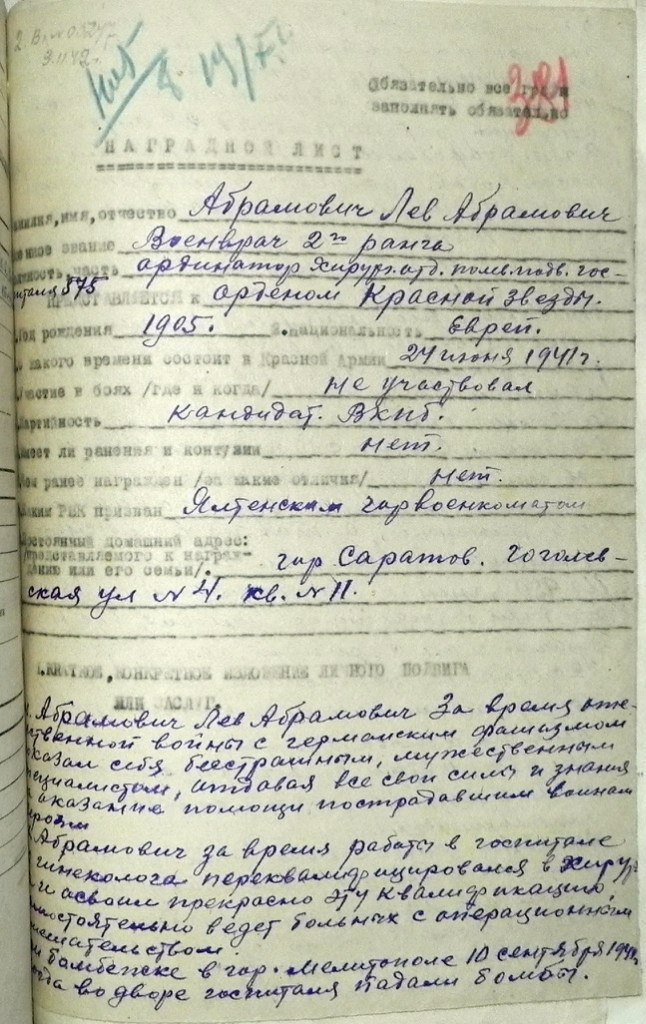 3.11.42г.
381
Обязательно все графы
заполнять обязательно
НАГРАДНОЙ ЛИСТ
амилия, имя, отчество Абрамович Лев Абрамович
нное звание Военврач 2го ранга
ность, часть ординатор хирург. отд. полев. подв. гос-
питаля 875
ПРЕДСТАВЛЯЕТСЯ к орденом Красной Звезды.
.Год рождения 1905. 2. национальность Еврей.
какого времени состоит в Красной Армии 24 июня 1941 г.
частие в боях /где и когда/ не участвовал
артийность Кандидат. ВКПб.
меет ли ранения и контузии нет.
ем ранее награжден /за какие отличия/ нет.
аким РВК призван Ялтенским горвоенкоматом
остоянный домашний адрес:
представляемого к награж-
дению или его семьи/. гор Саратов. Гоголев-
ская ул N 4. кв. N 11.
.КРАТКОЕ, КОНКРЕТНОЕ ИЗЛОЖЕНИЕ ЛИЧНОГО ПОДВИГА
ИЛИ ЗАСЛУГ.
Абрамович Лев Абрамович За время оте-
ственной войны с германским фашизмом
оказал себя бесстрашным, мужественным
пециалистом, отдавая все свои силы и знания
оказание помощи пострадавшим воинам
Абрамович за время работы в госпитале
гинеколога переквалифицировался в хирур
и освоил прекрасно эту квалификацию,
мостоятельно ведет больных с операционным
мешательством.
и бомбежке в гор. Мелитополе 10 сентября 1941г.
огда во дворе госпиталя падали бомбы.